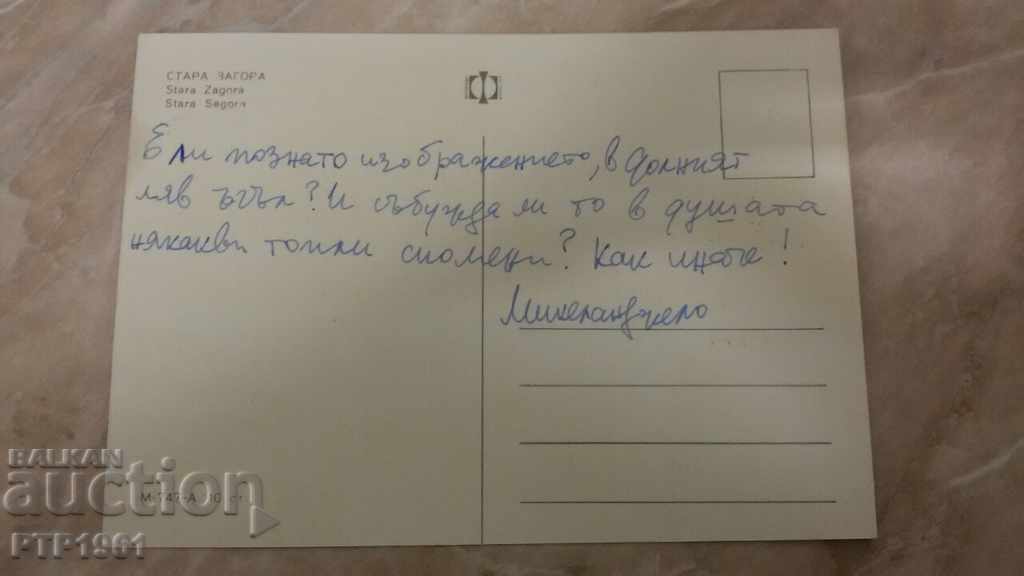 СТАРА ЗАГОРА
Stara Zagora
Stara Sagora
Е ли познато изображението, в долният
ляв ъгъл? И събужда ли то в душата
някакви топли спомени? Как иначе!
Микеланджело
BALKAN
auction
PTP1961